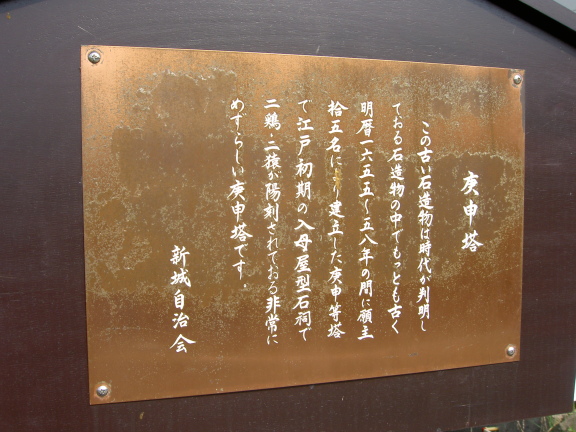 庚申塔
この古い石造物は時代が判明し
ておる石造物の中でもっとも古く
明暦一六五五～五八年の間に願主
拾五名により建立した庚申等塔
で江戸初期の入母屋型石祠で
二鶏・二猿が陽刻されておる非常に
めずらしい庚申塔です。
新城自治会